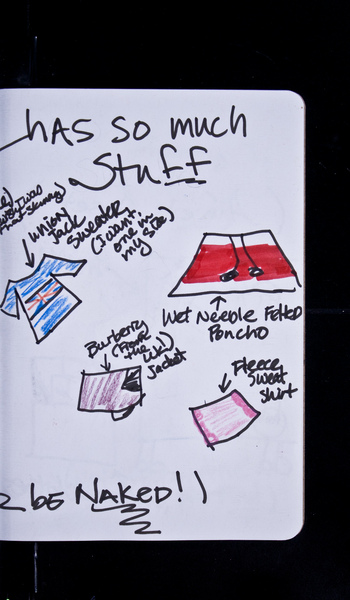 hAS so much
Stuff
that skinny)
union
jack
sweater
(I want
one in
my size)
Wet Needle Felted
Poncho
Burberry
(From
the
UK!)
Jacket
Fleece
Sweat
shirt
be NAKED!)